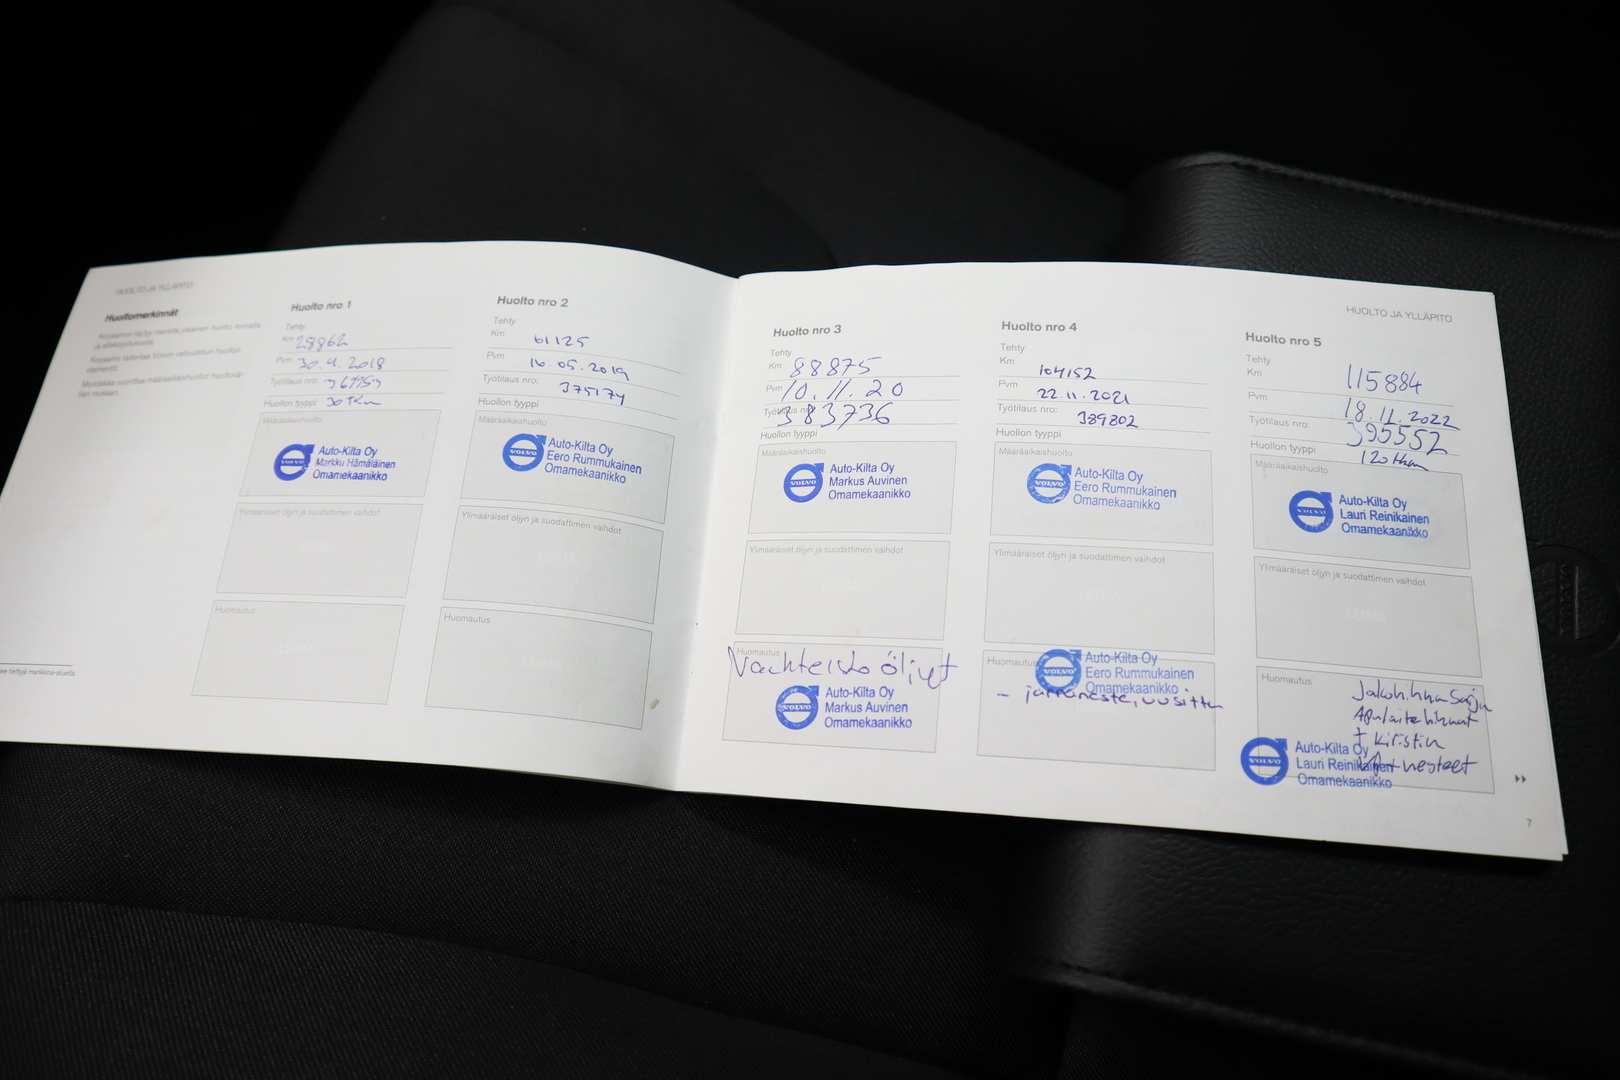 HUOLTO JA YLLÄPITO
Huoltomerkinnät
Huolto nro 1
Tehty
Km 28862
Pvm 30.4.2018
Työtilaus nro:
Huollon tyyppi 30 tkm
Määräaikaishuolto
VOLVO
Auto-Kilta Oy
Markku Hämäläinen
Omamekaanikko
Ylimääräiset öljyn ja suodattimen vaihdot
LEIMA
Huomautus
LEIMA
Huolto nro 2
Tehty
Km 61125
Pvm 16.05.2019
Työtilaus nro: 375174
Huollon tyyppi
Määräaikaishuolto
VOLVO
Auto-Kilta Oy
Eero Rummukainen
Omamekaanikko
Ylimääräiset öljyn ja suodattimen vaihdot
LEIMA
Huomautus
LEIMA
Huolto nro 3
Tehty
Km 88875
Pvm 10.11.20
Työtilaus nro: 383736
Huollon tyyppi
Määräaikaishuolto
VOLVO
Auto-Kilta Oy
Markus Auvinen
Omamekaanikko
Ylimääräiset öljyn ja suodattimen vaihdot
LEIMA
Huomautus
Vaihteisto öljyt
VOLVO
Auto-Kilta Oy
Markus Auvinen
Omamekaanikko
Huolto nro 4
Tehty
Km 104152
Pvm 22.11.2021
Työtilaus nro: 389802
Huollon tyyppi
Määräaikaishuolto
VOLVO
Auto-Kilta Oy
Eero Rummukainen
Omamekaanikko
Ylimääräiset öljyn ja suodattimen vaihdot
LEIMA
Huomautus
VOLVO
Auto-Kilta Oy
Eero Rummukainen
Omamekaanikko
- jarruneste, uusittu
HUOLTO JA YLLÄPITO
Huolto nro 5
Tehty
Km 115884
Pvm 18.11.2022
Työtilaus nro: 395552
Huollon tyyppi 120 tkm
Määräaikaishuolto
VOLVO
Auto-Kilta Oy
Lauri Reinikainen
Omamekaanikko
Ylimääräiset öljyn ja suodattimen vaihdot
LEIMA
Huomautus
Jakohihnasarja
Apulaitehihnat
+ kiristin
VOLVO
Auto-Kilta Oy
Lauri Reinikainen
Omamekaanikko
7
VOLVO